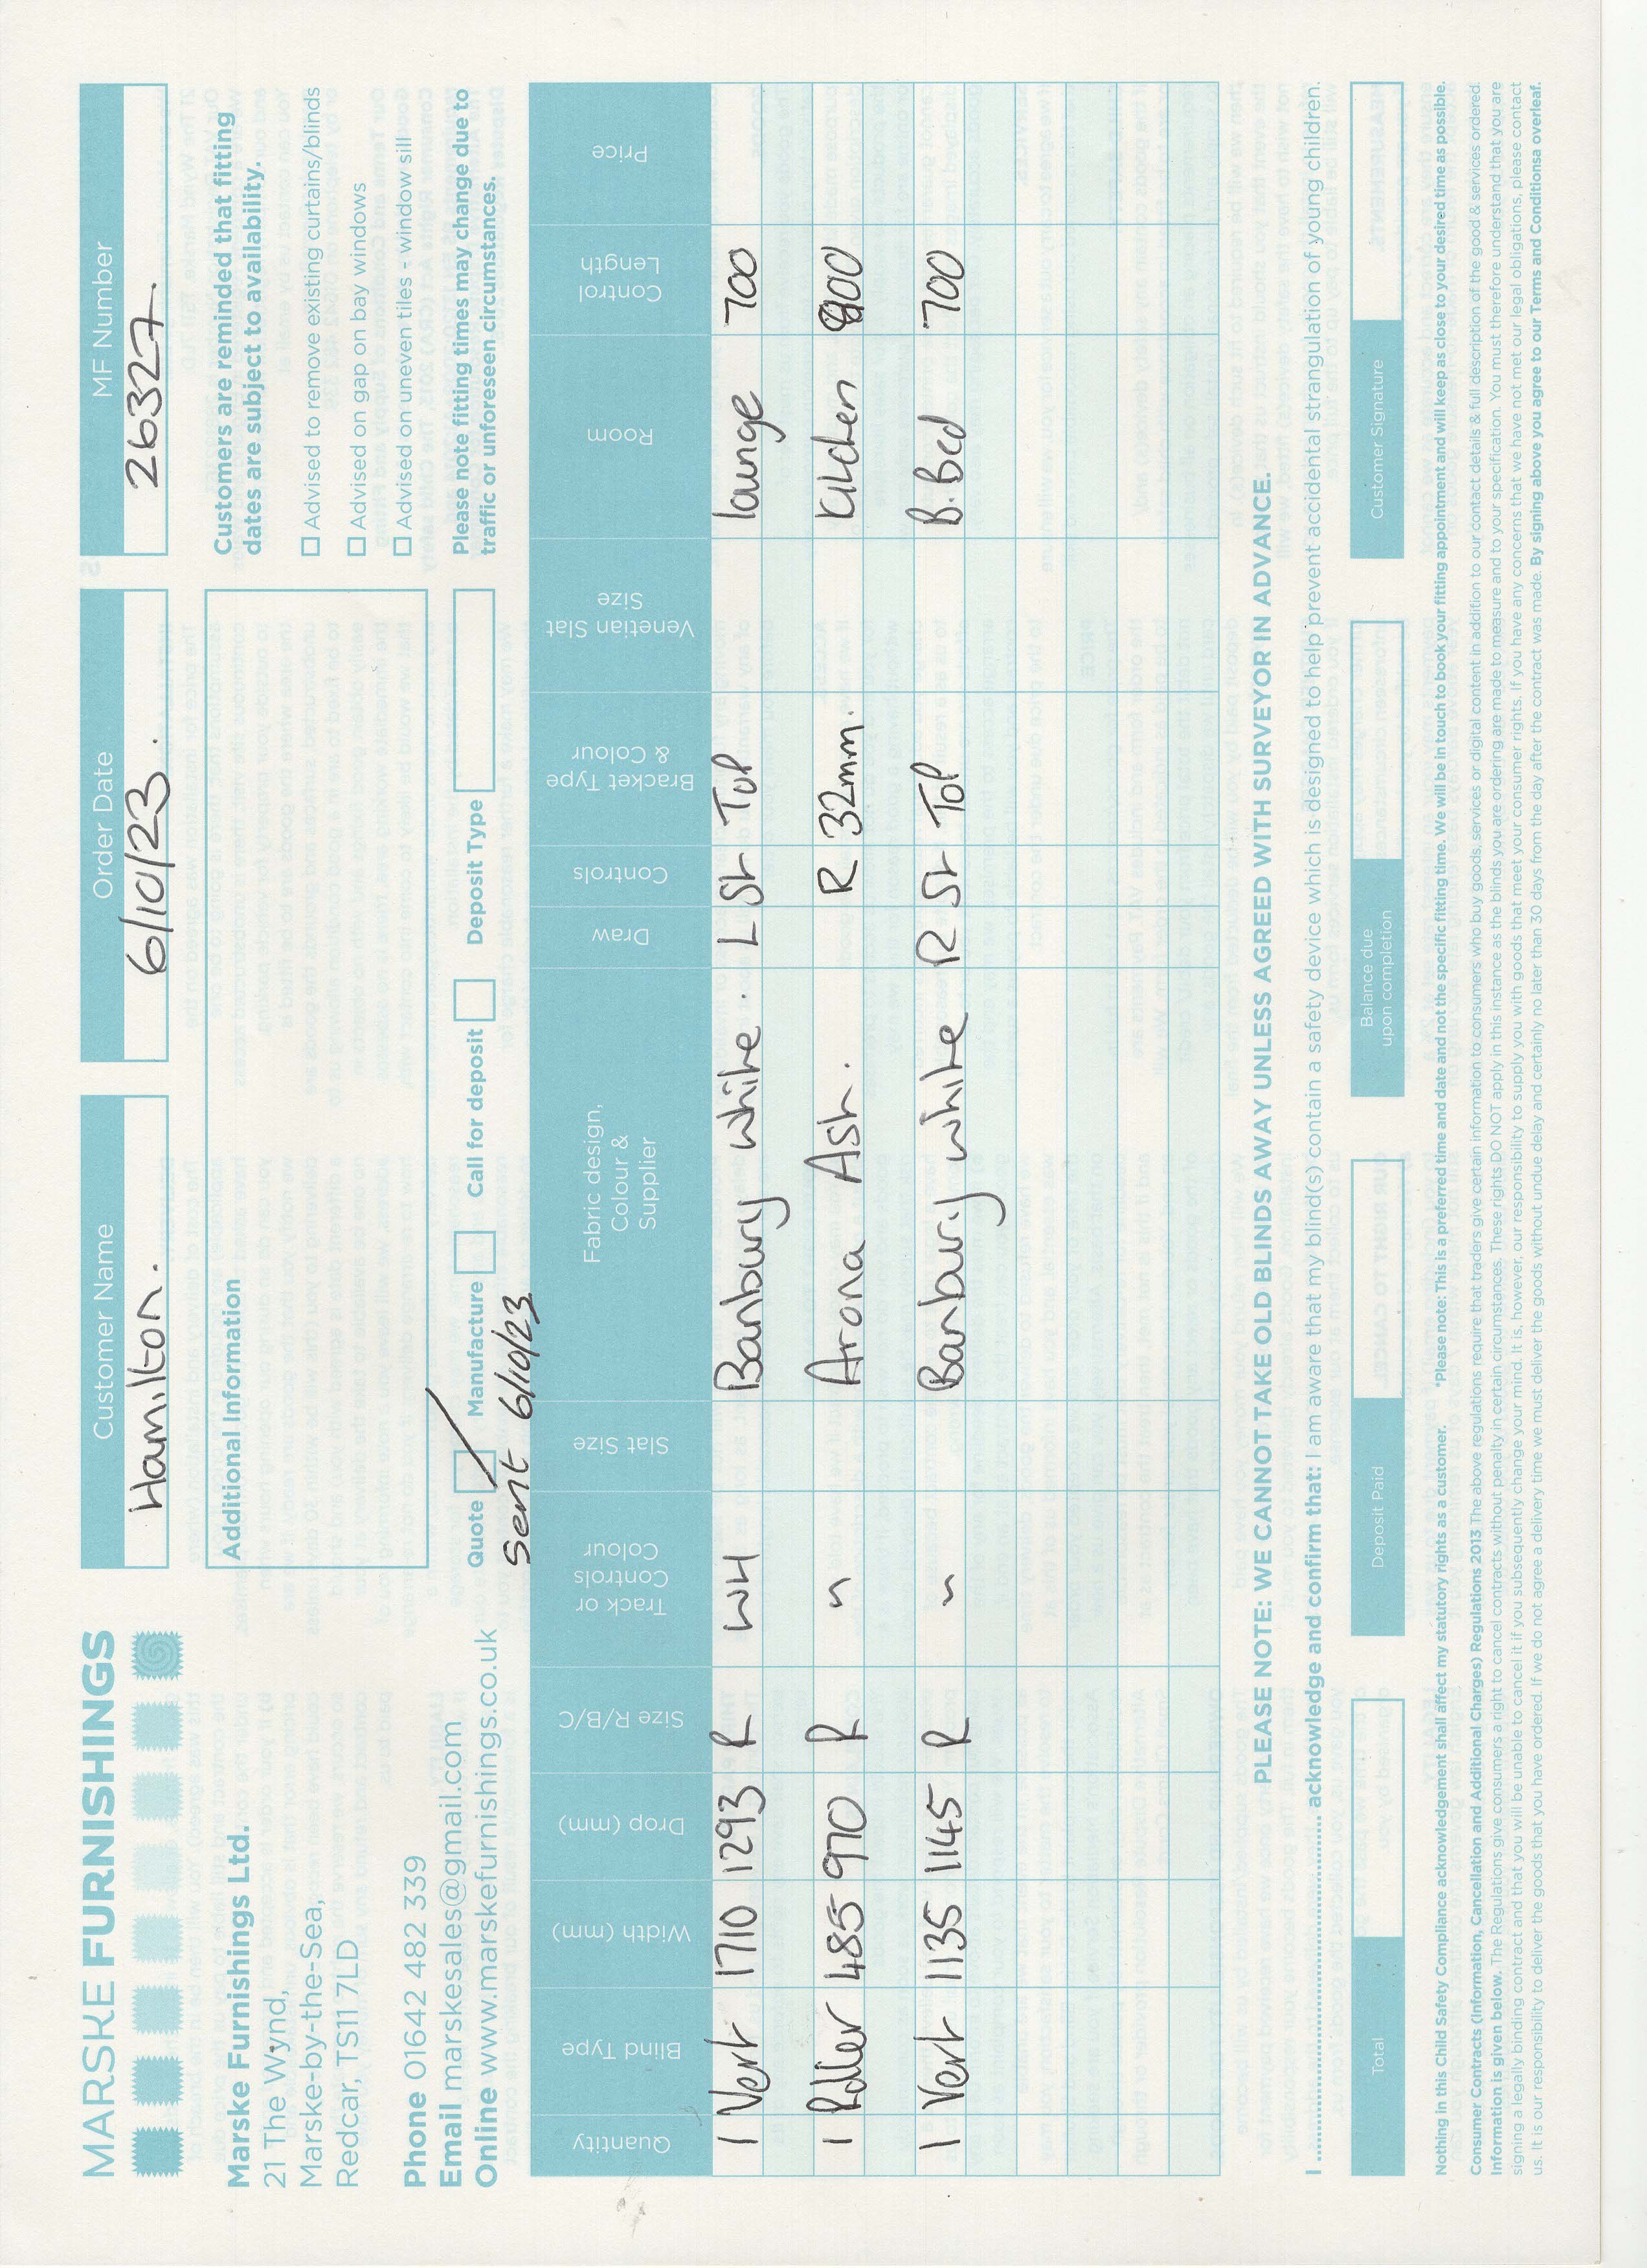 MARSKE FURNISHINGS
Marske Furnishings Ltd.
21 The Wynd,
Marske-by-the-Sea,
Redcar, TS11 7LD
Phone 01642 482 339
Email marskesales@gmail.com
Online www.marskefurnishings.co.uk
Customer Name
Hamilton.
Order Date
6/10/23.
MF Number
26327.
Additional Information
Customers are reminded that fitting
dates are subject to availability.
Advised to remove existing curtains/blinds
Advised on gap on bay windows
Advised on uneven tiles - window sill
Quote Manufacture Call for deposit Deposit Type
Sent 6/10/23
Please note fitting times may change due to
traffic or unforeseen circumstances.
Quantity Blind Type Width (mm) Drop (mm) Size R/B/C Track or Controls Colour Slat Size Fabric design, Colour & Supplier Draw Controls Bracket Type & Colour Venetian Slat Size Room Control Length Price
1 Vert 1710 1293 R WH Banbury White. L St Top lounge 700
1 Roller 485 970 R " Arona Ash. R 32mm. Kitchen 800
1 Vert 1135 1145 R " Banbury White R St Top B.Bed 700
PLEASE NOTE: WE CANNOT TAKE OLD BLINDS AWAY UNLESS AGREED WITH SURVEYOR IN ADVANCE.
I .................................................. acknowledge and confirm that: I am aware that my blind(s) contain a safety device which is designed to help prevent accidental strangulation of young children.
Total Deposit Paid Balance due upon completion Customer Signature
Nothing in this Child Safety Compliance acknowledgement shall affect my statutory rights as a customer. *Please note: This is a preferred time and date and not the specific fitting time. We will be in touch to book your fitting appointment and will keep as close to your desired time as possible.
Consumer Contracts (Information, Cancellation and Additional Charges) Regulations 2013 The above regulations require that traders give certain information to consumers who buy goods, services or digital content in addition to our contact details & full description of the good & services ordered.
Information is given below. The Regulations give consumers a right to cancel contracts without penalty in certain circumstances. These rights DO NOT apply in this instance as the blinds you are ordering are made to measure and to your specification. You must therefore understand that you are
signing a legally binding contract and that you will be unable to cancel it if you subsequently change your mind. It is, however, our responsibility to supply you with goods that meet your consumer rights. If you have any concerns that we have not met our legal obligations, please contact
us. It is our responsibility to deliver the goods that you have ordered. If we do not agree a delivery time we must deliver the goods without undue delay and certainly no later than 30 days from the day after the contract was made. By signing above you agree to our Terms and Conditionsa overleaf.